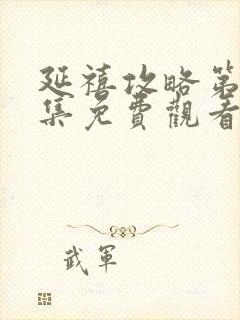 延禧攻略第
集免費觀看
武軍